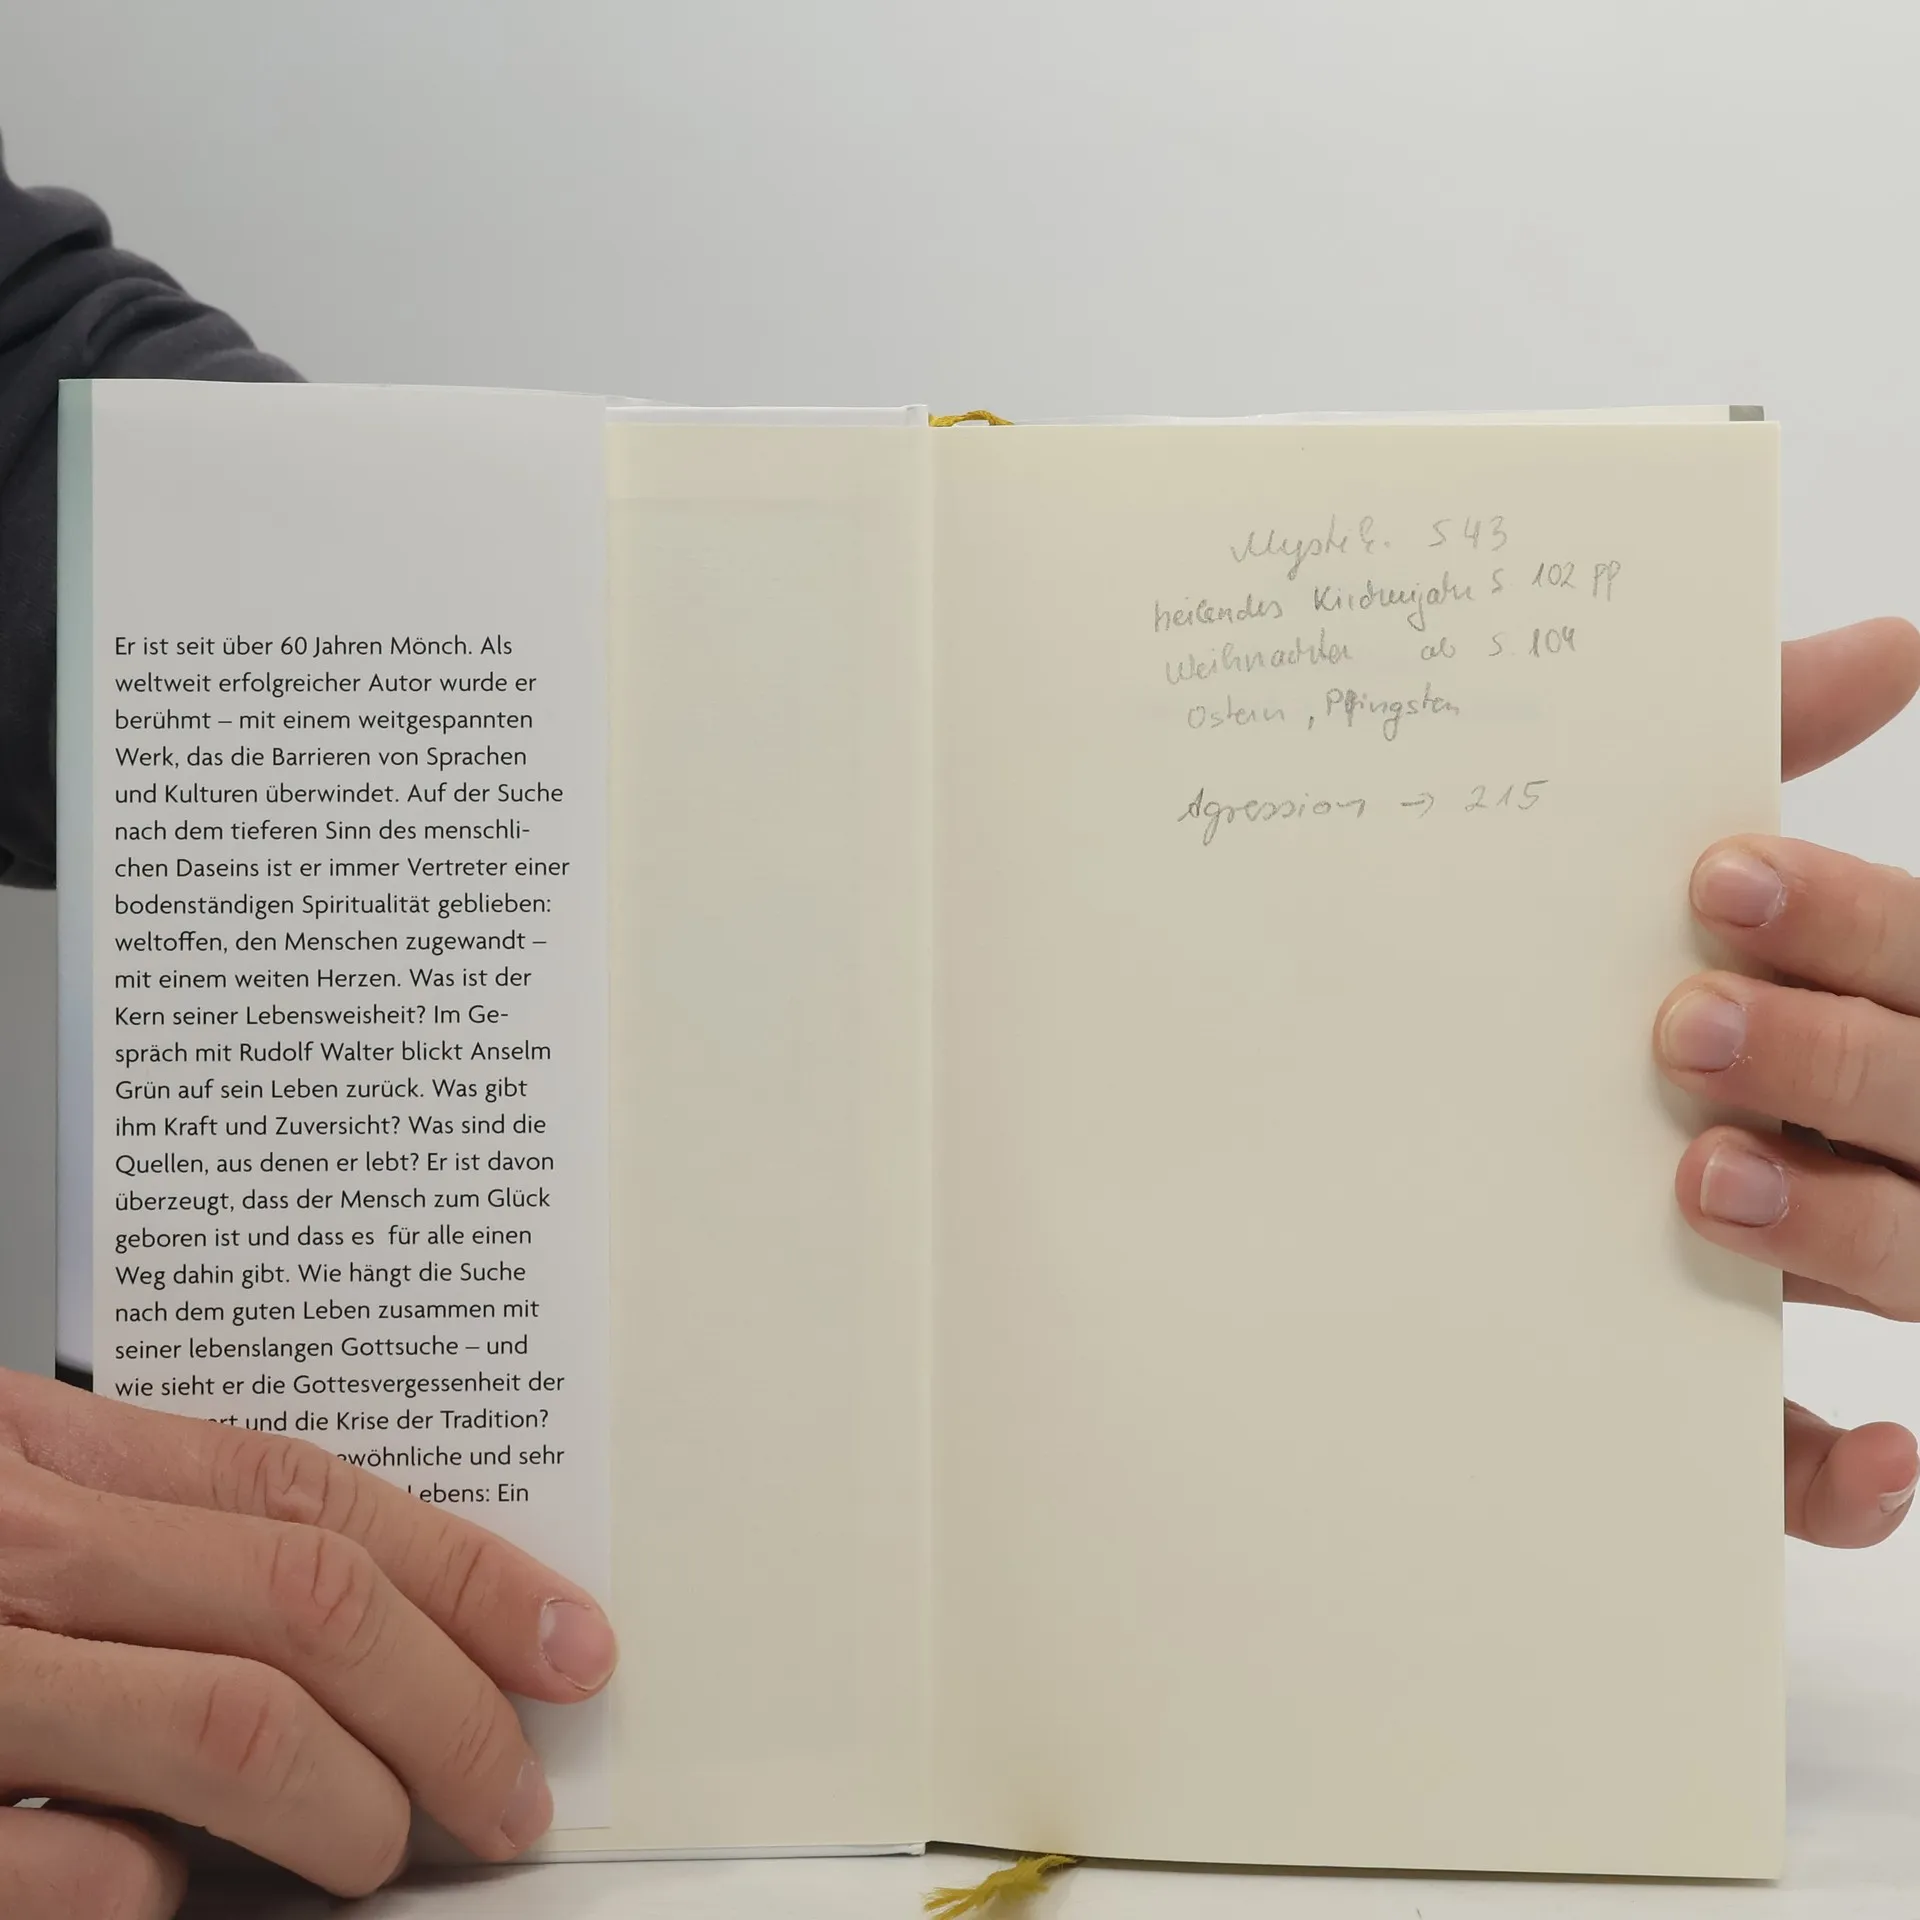 Er ist seit über 60 Jahren Mönch. Als
weltweit erfolgreicher Autor wurde er
berühmt – mit einem weitgespannten
Werk, das die Barrieren von Sprachen
und Kulturen überwindet. Auf der Suche
nach dem tieferen Sinn des menschli-
chen Daseins ist er immer Vertreter einer
bodenständigen Spiritualität geblieben:
weltoffen, den Menschen zugewandt –
mit einem weiten Herzen. Was ist der
Kern seiner Lebensweisheit? Im Ge-
spräch mit Rudolf Walter blickt Anselm
Grün auf sein Leben zurück. Was gibt
ihm Kraft und Zuversicht? Was sind die
Quellen, aus denen er lebt? Er ist davon
überzeugt, dass der Mensch zum Glück
geboren ist und dass es für alle einen
Weg dahin gibt. Wie hängt die Suche
nach dem guten Leben zusammen mit
seiner lebenslangen Gottsuche – und
wie sieht er die Gottesvergessenheit der
und die Krise der Tradition?
und sehr
Lebens: Ein
Mystik. S 43
heilendes Kirchenjahr S 102 pp
Weihnachten ab S. 104
Ostern, Pfingsten
Agression → 215